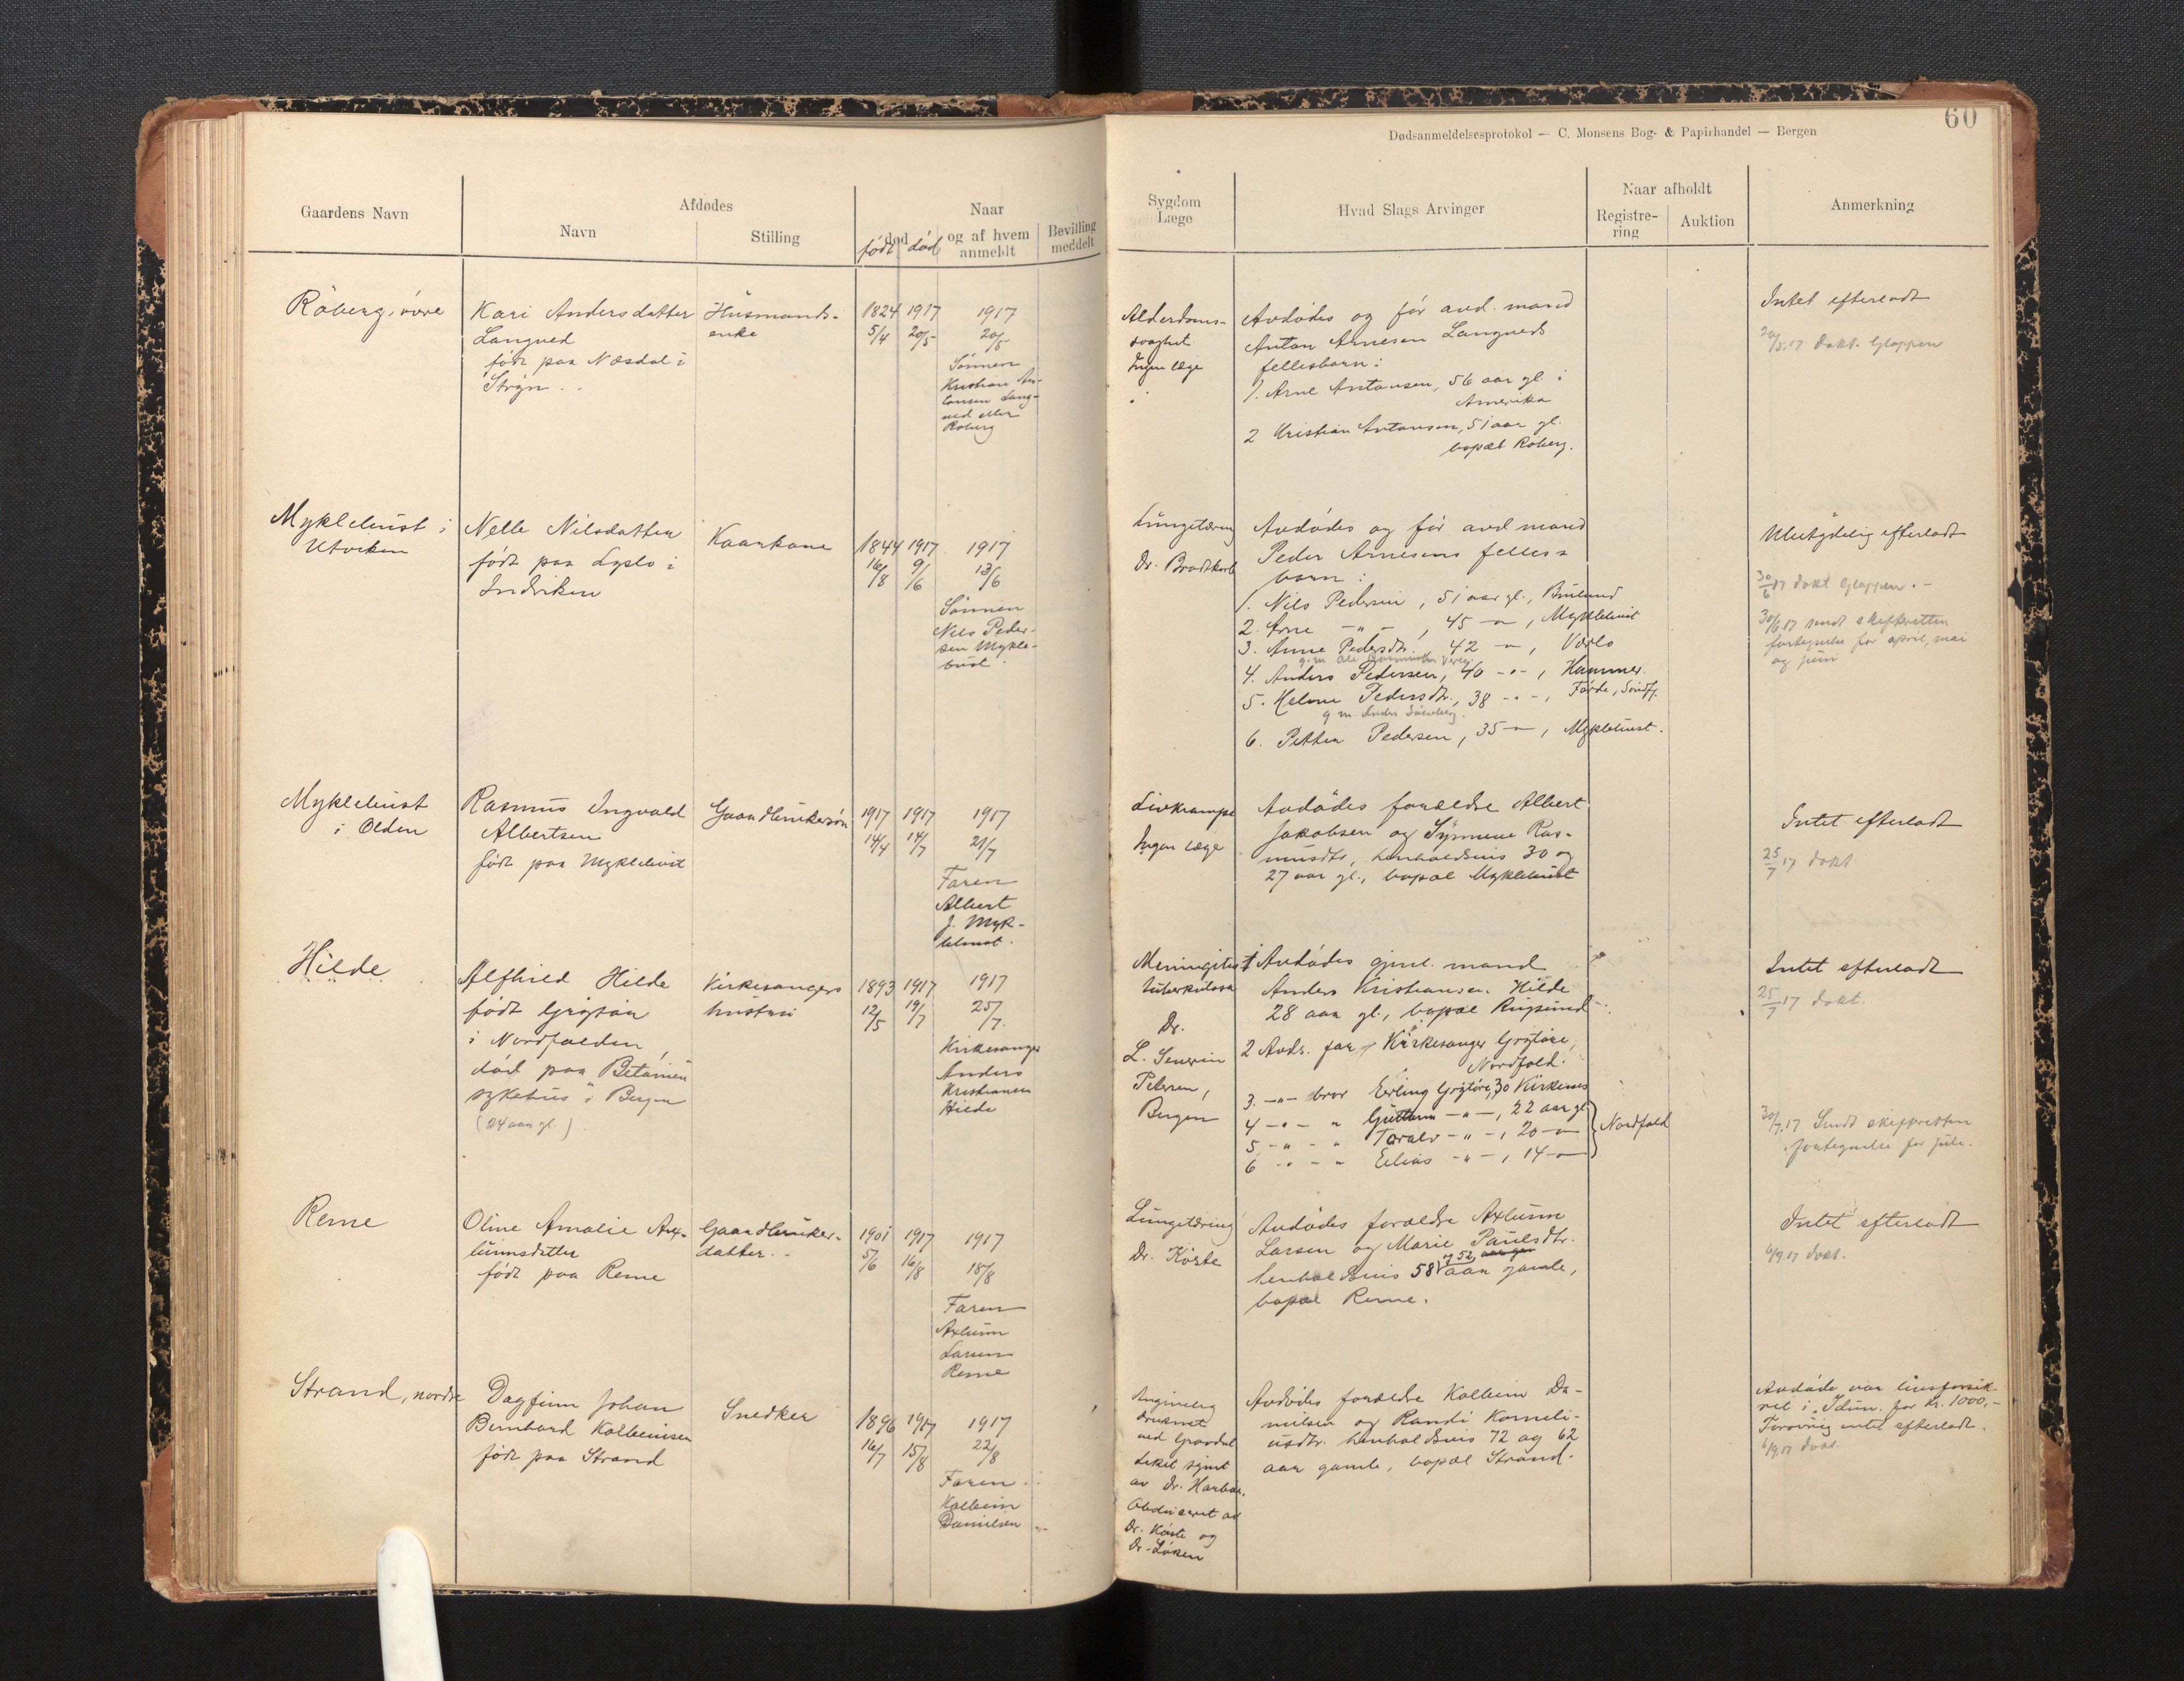 60
Dødsanmeldelsesprotokol — C. Monsens Bog- & Papirhandel — Bergen
Gaardens Navn
Afdødes
Navn
Stilling
Naar
død
født død
og af hvem
anmeldt
Bevilling
meddelt
Sygdom
Læge
Hvad Slags Arvinger
Naar afholdt
Registre-
ring
Auktion
Anmerkning
Röberg, øvre
Kari Andersdatter
Langved
født paa Næsdal i
Stryn
Husmands-
enke
1824 1917 1917
5/4 20/5 20/5
Sønnen
Kristian An-
tonsen Lang-
ved eller
Roberg
Alderdoms-
svaghet
Ingen læge
Avdødes og før avd. mand
Anton Arnesen Langveds
fellesbarn:
1. Arne Antonsen, 56 aar gl. i
Amerika
2 Kristian Antonsen, 51 aar gl.
bopæl Röberg.
Intet efterladt
20/5.17 dokt. Gloppen
Myklebust i
Utviken
Nelle Nilsdatter
født paa Lyslo i
Indviken
Kaarkone
1844 1917 1917
16/8 9/6 13/6
Sønnen
Nils Peder-
sen Mykle-
bust.
Lungetæring
Dr. Bradtkorb
Avdødes og før avd mand
Peder Arnesens felles=
barn:
1. Nils Pedersen, 51 aar gl.,
2. Arne — " —, 45 — " —, Myklebust
3. Anne Pedersdtr. 42 — " —,
g.m. Ole
4. Anders Pedersen, 40 — " —, Hammer.
5. Helene Pedersdtr., 38 — " —, Førde, Søndfj.
g.m. Anders
6. Petter Pedersen, 35 — " —, Myklebust.
Ubetydelig efterladt
30/6 17 dokt Gloppen. —
30/6.17 sendt skifteretten
fortegnelse for april, mai
og juni
Myklebust
i Olden
Rasmus Ingvald
Albertsen
født paa Myklebust
Gaardbrukersøn
1917 1917 1917
14/4 14/7 21/7
Faren
Albert
J. Myk-
lebust.
Livkrampe
Ingen læge
Avdødes forældre Albert
Jakobsen og Synneve Ras-
musdtr, henholdsvis 30 og
27 aar gl., bopæl Myklebust
Intet efterladt
25/7 17 dokt.
Hilde
Alfhild Hilde
født Grøtøen
i Nordfolden,
død paa Betanien
sykehus i Bergen
(24 aar gl.).
Kirkesangers
hustru
1893 1917 1917
12/5 19/7 25/7.
Kirkesanger
Anders
Kristiansen
Hilde
Meningitis
tuberkulosa
Dr.
L. Severin
Petersen,
Bergen
1 Avdødes gjenl. mand
Anders Kristiansen Hilde
28 aar gl., bopæl Rugsund
2 Avds. far, Kirkesanger Grøtøre,
Nordfold.
3. — " — bror Erling Grøtøre, 30 Kirkenes
4 — " — " Guttorm — " —, 22 aar gl
5 — " — " Toralv — " —, 20 — "
6 — " — " Elias — " —, 14 — "
Nordfold
Intet efterladt
25/7 17 dokt.
30/7.17 Sendt skifteretten
fortegnelse for juli.
Reme
Oline Amalie Ax-
lunnsdatter
født paa Reme
Gaardbruker-
datter.
1901 1917 1917
5/6 16/8 18/8
Faren
Axlunn
Larsen
Reme
Lungetæring
Dr. Köste
Avdødes forældre Axlunn
Larsen og Marie Paulsdtr.
og 52
henholdsvis 58 aar gamle,
bopæl Reme.
Intet efterladt
6/9 17 dokt.
Strand, nordre
Dagfinn Johan
Bernhard Kolbeinsen
født paa Strand
Snedker
1896 1917 1917
16/7 15/8 22/8
Faren
Kolbein
Danielsen
Angivelig
druknet
ved Gravdal
Liket synt
av Dr. Harboe.
Obduceret av
Dr. Köste og
Dr. Löken
Avdødes forældre Kolbein Da-
nielsen og Randi Korneli-
usdtr. henholdsvis 72 og 62
aar gamle, bopæl Strand.
Avdøde var livsforsik-
ret i "Idun" for Kr. 1000,-
Forøvrig intet efterladt.
6/9 17 dokt.